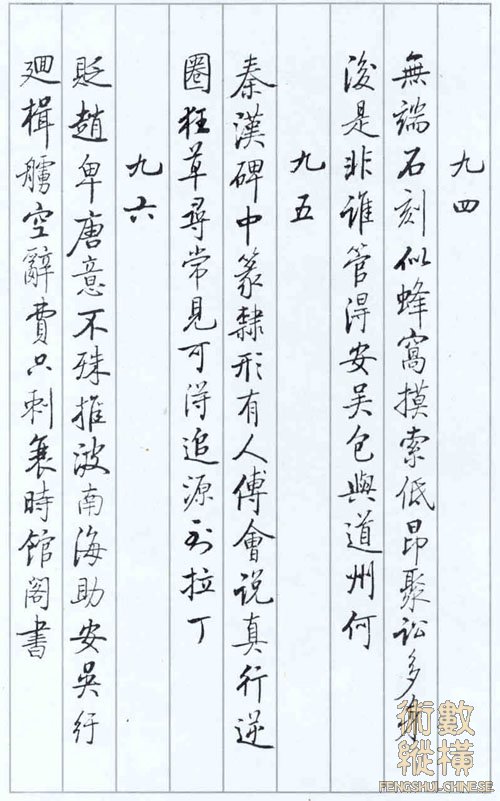 九四
無端石刻似蜂窩摸索低昂聚訟多身
後是非誰管得安吳包與道州何
九五
秦漢碑中篆隸形有人傅會説真行逆
圈狂草尋常見可得追源到拉丁
九六
貶趙卑唐意不殊推波南海助安吳紆
迴楫艣空辭費只剩衰時館閣書
術數
縱橫
FENGSHUI-CHINESE